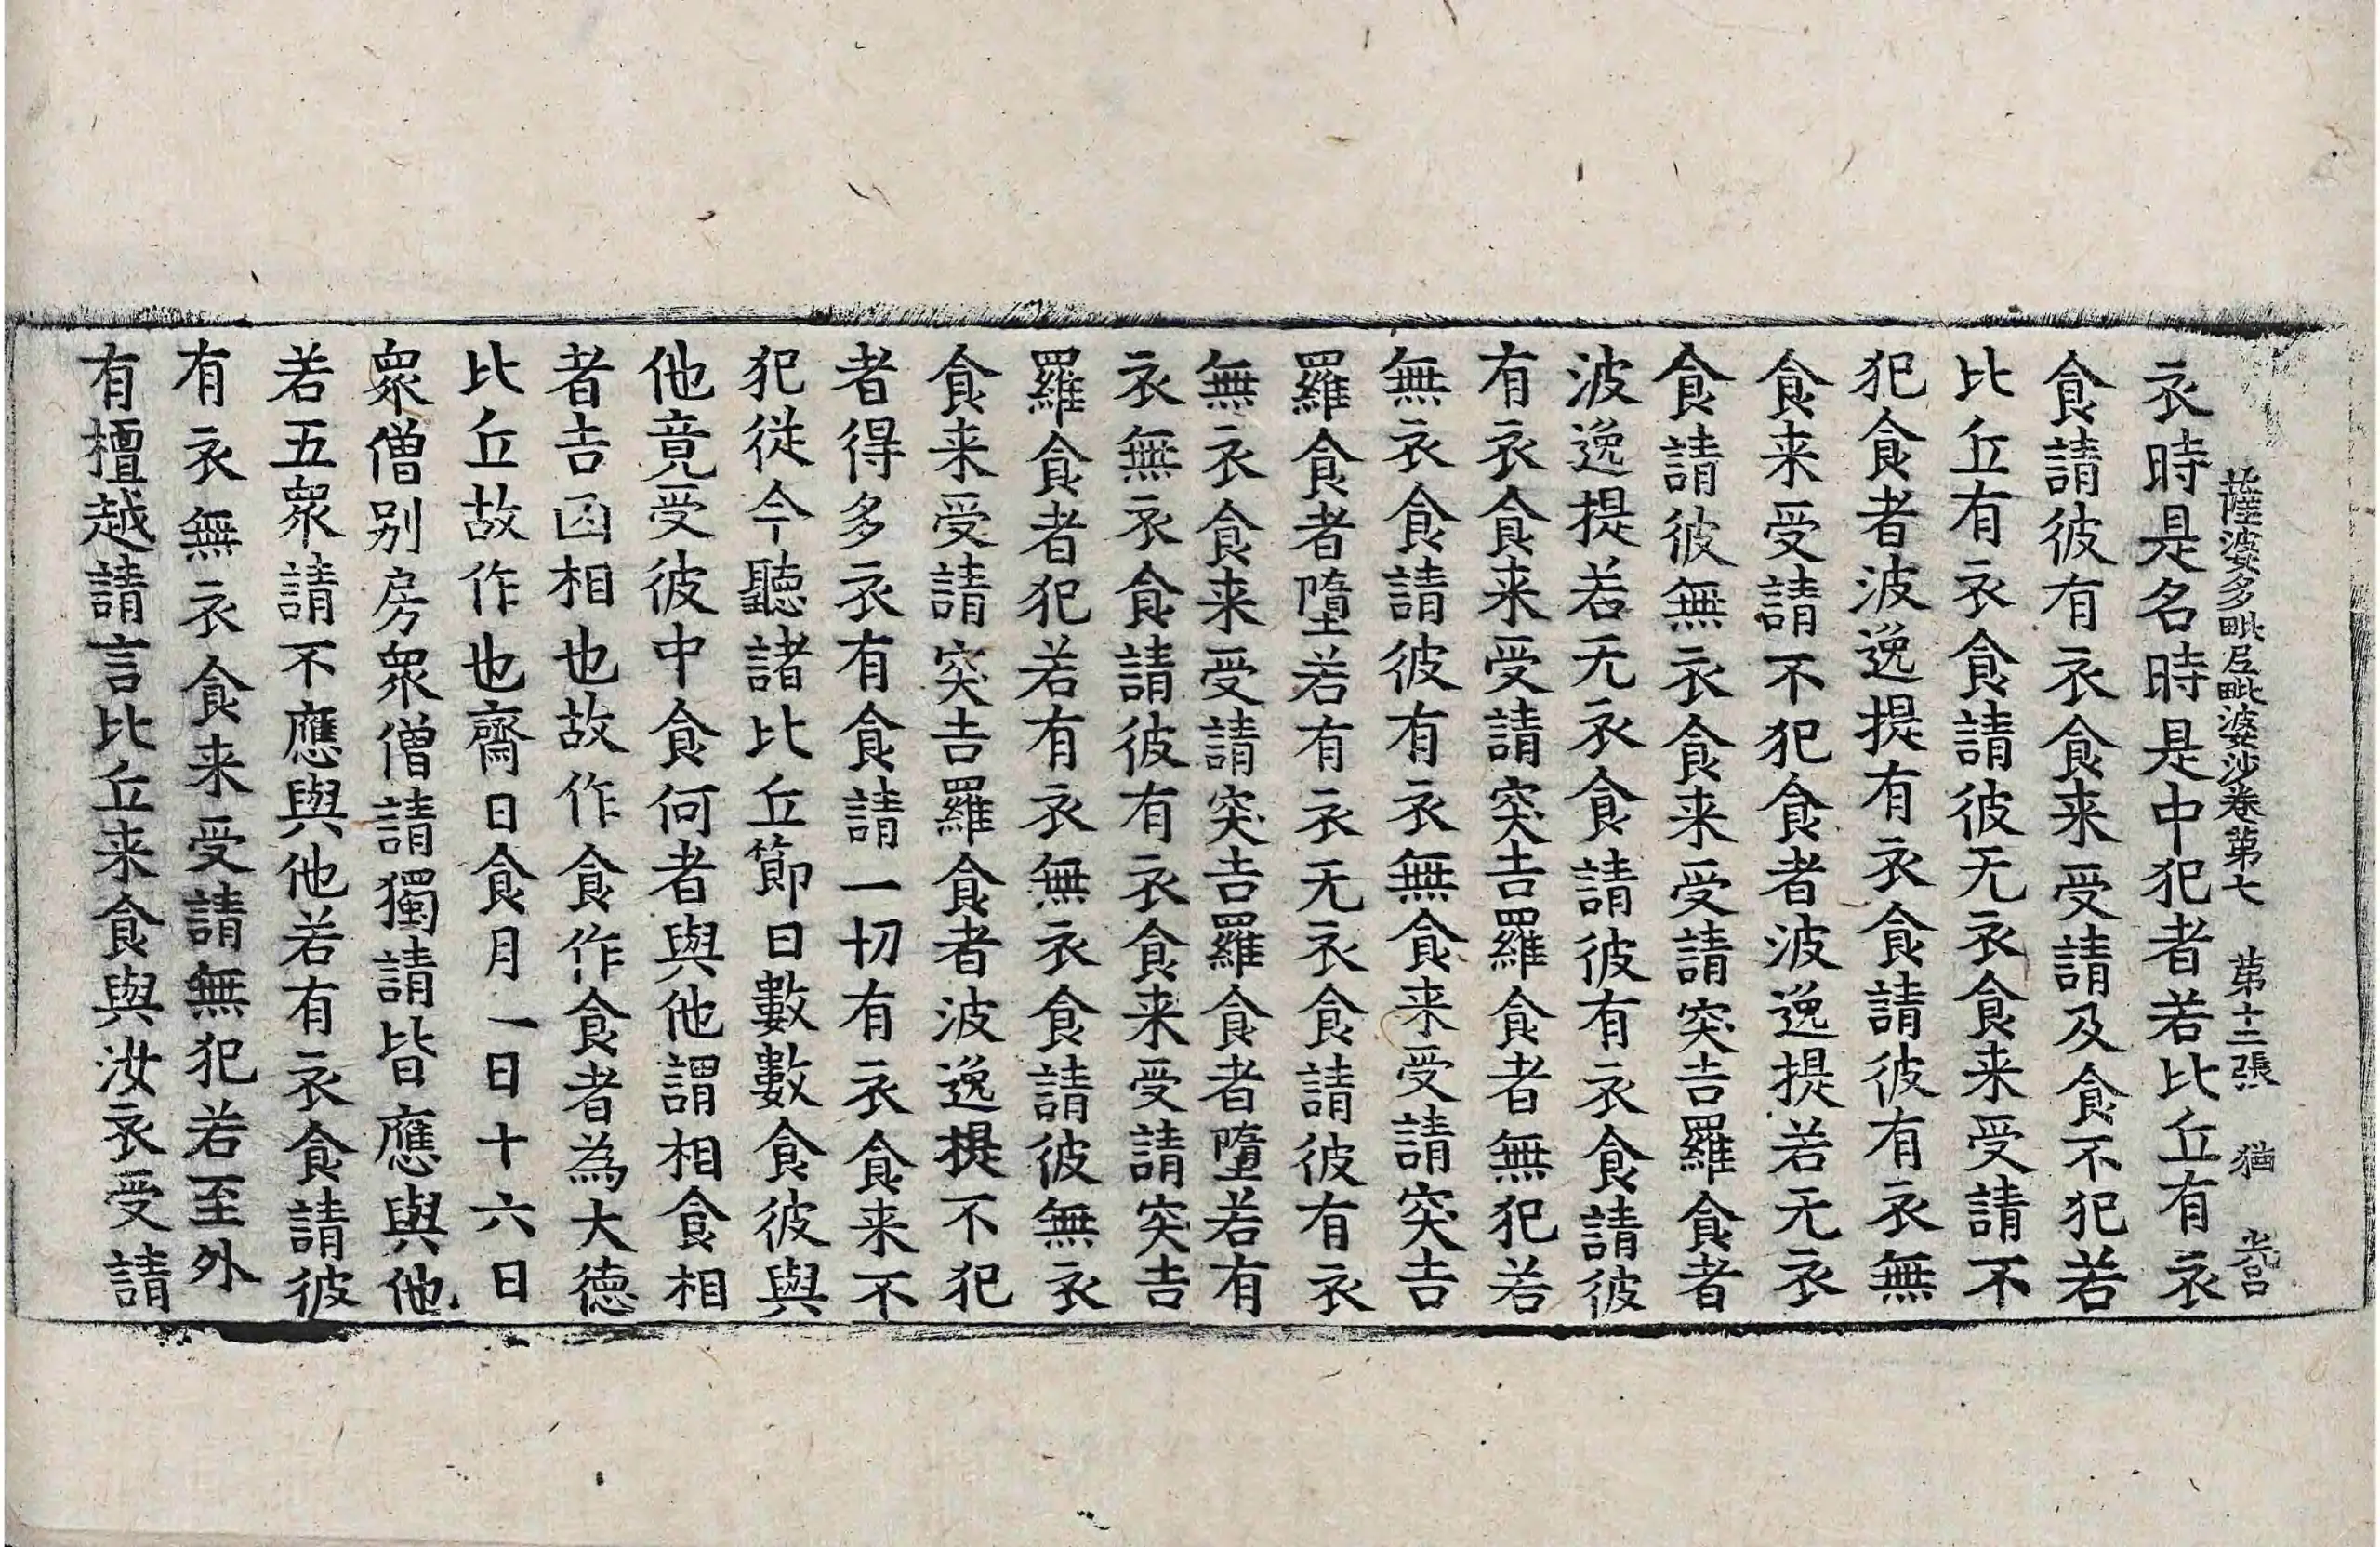 薩婆多毗尼毗婆沙卷第七 第十二張 猶
衣時是名時是中犯者若比丘有衣
食請彼有衣食来受請及食不犯若
比丘有衣食請彼无衣食来受請不
犯食者波逸提有衣食請彼有衣無
食来受請不犯食者波逸提若无衣
食請彼無衣食来受請突吉羅食者
波逸提若无衣食請彼有衣食請彼
有衣食来受請突吉羅食者無犯若
無衣食請彼有衣無食来受請突吉
羅食者墮若有衣无衣食請彼有衣
無衣食来受請突吉羅食者墮若有
衣無衣食請彼有衣食来受請突吉
羅食者犯若有衣無衣食請彼無衣
食来受請突吉羅食者波逸提不犯
者得多衣有食請一切有衣食来不
犯從今聽諸比丘節日數數食彼與
他竟受彼中食何者與他謂相食相
者吉凶相也故作食作食者為大德
比丘故作也齋日食月一日十六日
眾僧别房眾僧請獨請皆應與他
若五眾請不應與他若有衣食請彼
有衣無衣食来受請無犯若至外
有檀越請言比丘来食與汝衣受請